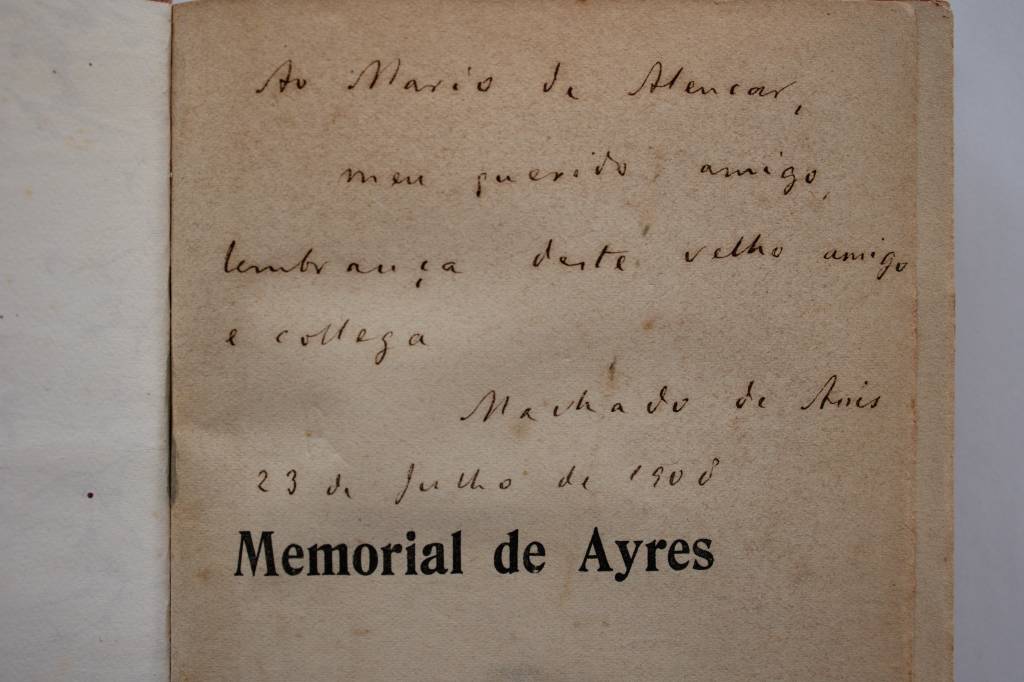 Ao Mario de Alencar,
meu querido amigo,
lembrança deste velho amigo
e collega
Machado de Assis
23 de Julho de 1908
Memorial de Ayres